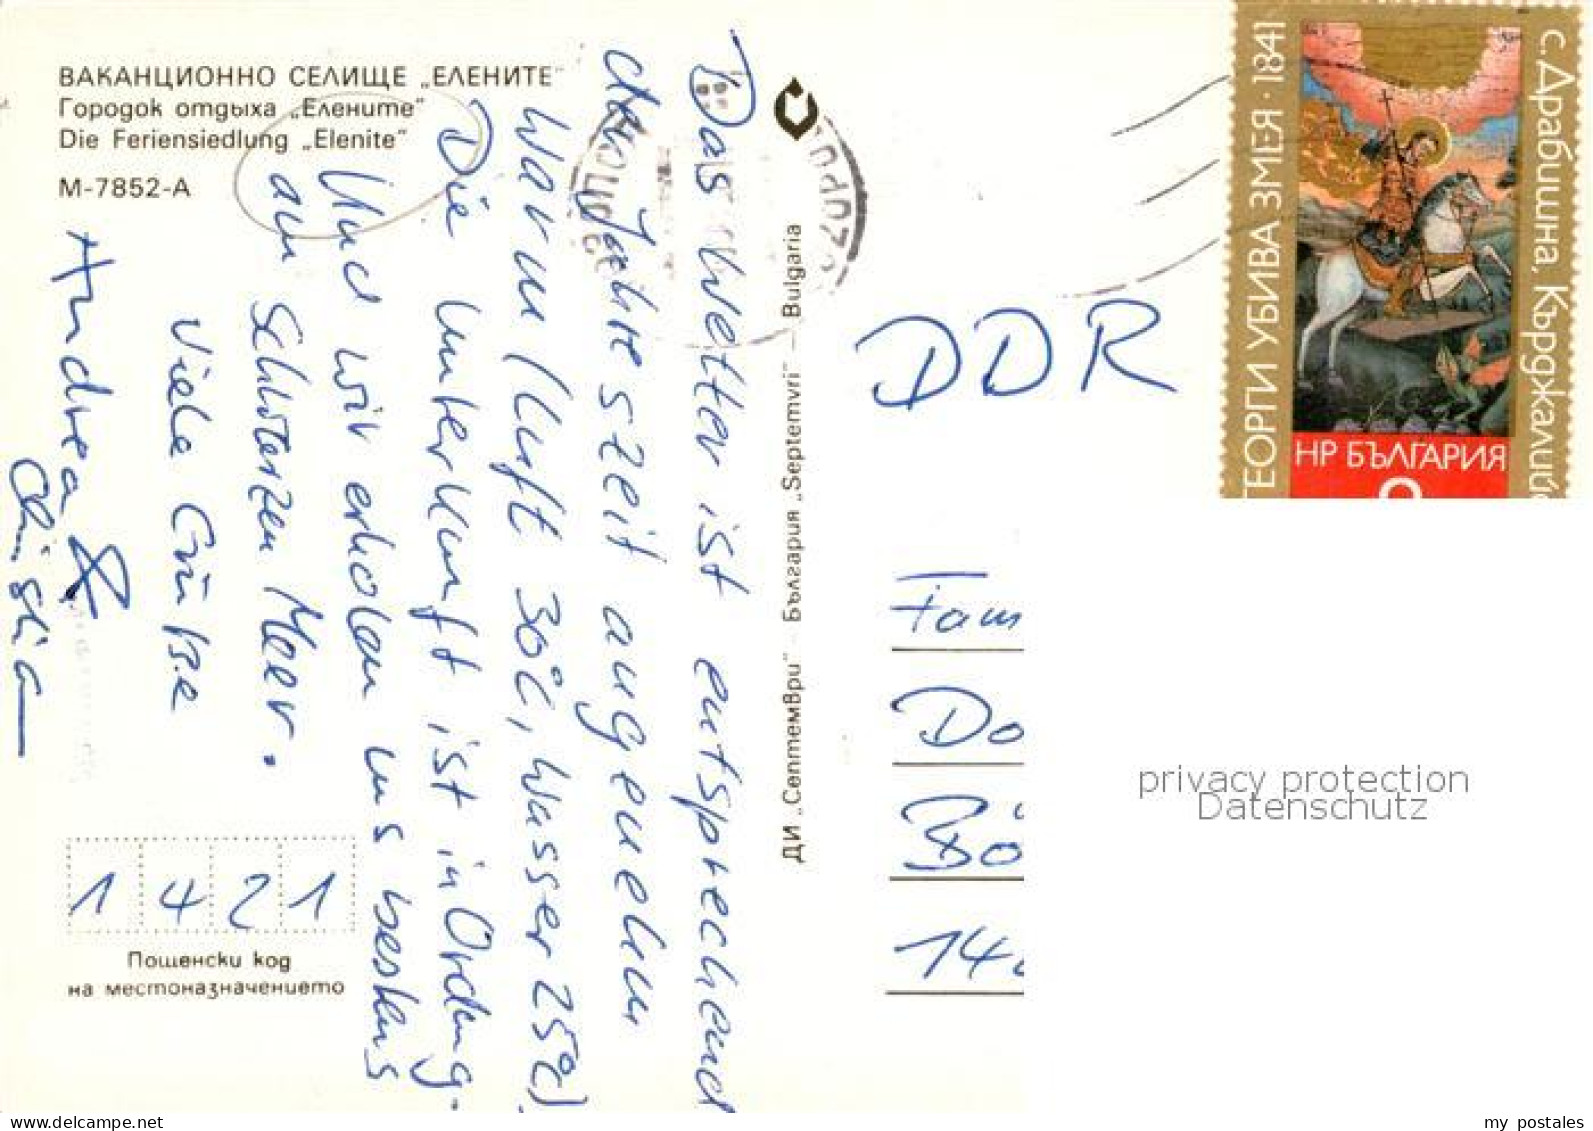 ВАКАНЦИОННО СЕЛИЩЕ „ЕЛЕНИТЕ"
Городок отдыха „Елените"
Die Feriensiedlung „Elenite"
М-7852-А
Das Wetter ist entsprechend
der Jahreszeit angenehm
warm (Luft 30°C, Wasser 25°C).
Die Unterkunft ist in Ordnung.
Und wir erholen uns bestens
am Schwarzen Meer.
Viele Grüße
Andrea &
Christia
1 4 2 1
Пощенски код
на местоназначението
ДИ „Септември" – България „Septemvri" – Bulgaria
ГЕОРГИ УБИВА ЗМЕЯ · 1841
с. Драбишна, Кърджалийс
НР БЪЛГАРИЯ
DDR
Fam
Do
Bö
14
privacy protection
Datenschutz
www.delcampe.net
my_postales